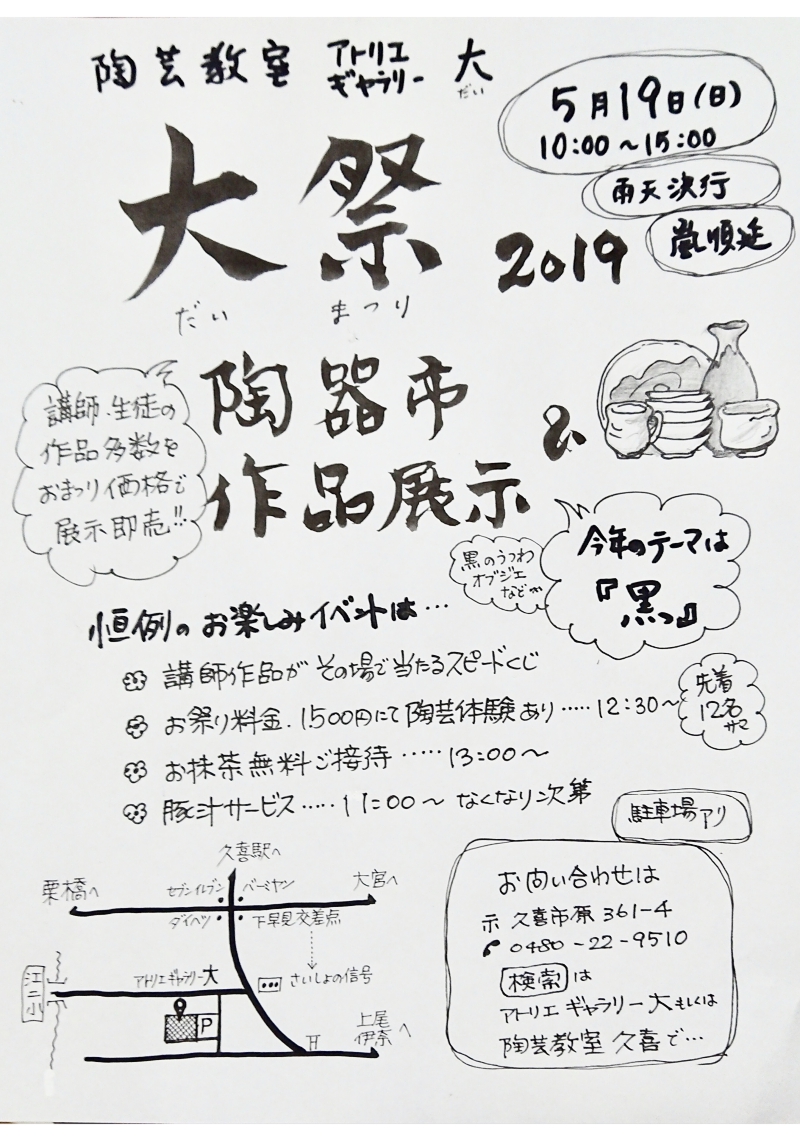 陶芸教室 アトリエ ギャラリー 大
だい
5月19日(日)
10:00〜15:00
雨天決行
嵐順延
大祭 2019
だい まつり
陶器市
&
作品展示
講師・生徒の
作品多数を
おまつり価格で
展示即売!!
今年のテーマは
『黒』
黒のうつわ
オブジェ
などが
恒例のお楽しみイベントは…
講師作品がその場で当たるスピードくじ
お祭り料金、1,500円にて陶芸体験あり……12:30〜
先着
12名
サマ
お抹茶無料ご接待……13:00〜
豚汁サービス……11:00〜なくなり次第
駐車場アリ
久喜駅へ
栗橋へ
セブンイレブン
バーミヤン
大宮へ
ダイハツ
下早見交差点
江二小
アトリエギャラリー大
さいしょの信号
P
上尾
伊奈へ
お問い合わせは
久喜市原361-4
0480-22-9510
検索は
アトリエギャラリー大もしくは
陶芸教室 久喜で…